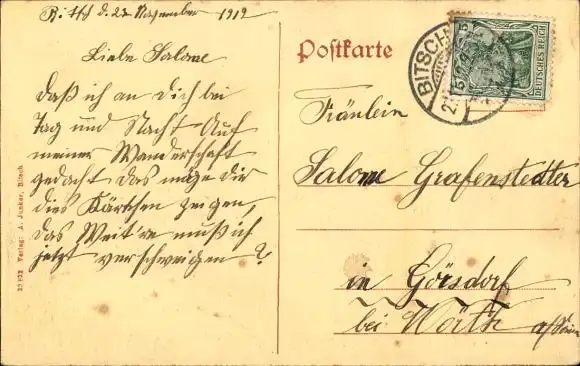 Bitsch d. 22 November 1912
Liebe Salome
Daß ich an dich bei
Tag und Nacht Auf
meiner Wanderschaft
gedacht Das möge dir
dies Kärtchen zeigen,
das Weit're muß ich
jetzt verschweigen?
Postkarte
BITSCH
DEUTSCHES REICH
Fräulein
Salome Grafenstedter
in Görsdorf
bei Wörth
23 922 Verlag: A. Junker, Bitsch